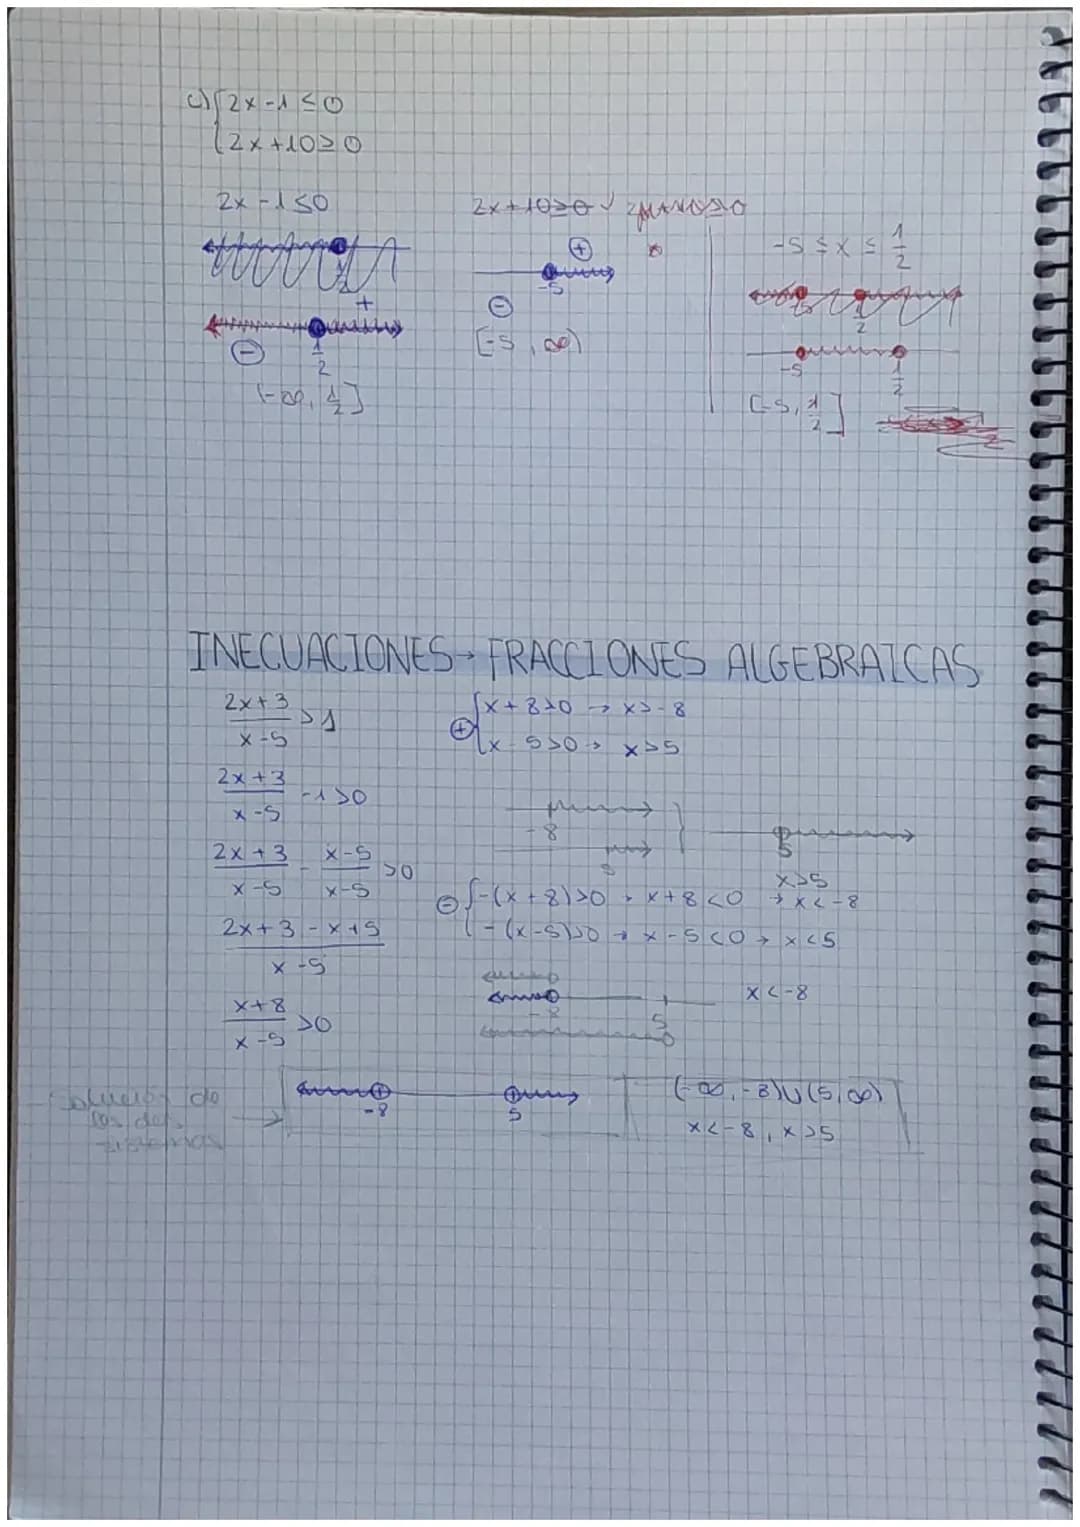 c) { 2x - 1 ≤ 0
2x + 10 ≥ 0
2x - 1 ≤ 0
1/2
+
-
1/2
(-∞, 1/2]
2x + 10 ≥ 0
+
-5
-
[-5, ∞)
-5 ≤ x ≤ 1/2
-5 1/2
-5 1/2
[-5, 1/2]
INECUACIONES → FRACCIONES ALGEBRAICAS
(2x+3)/(x-5) > 1
(2x+3)/(x-5) - 1 > 0
(2x+3)/(x-5) - (x-5)/(x-5) > 0
(2x+3-x+5)/(x-5)
(x+8)/(x-5) > 0
⊕ { x + 8 > 0 → x > -8
x - 5 > 0 → x > 5
-8
5
5
x > 5
⊖ { -(x+8) > 0 → x + 8 < 0 → x < -8
-(x-5) > 0 → x - 5 < 0 → x < 5
-8 5
x < -8
Solución de
los dos
sistemas
-8 5
(-∞, -8) ∪ (5, ∞)
x < -8, x > 5